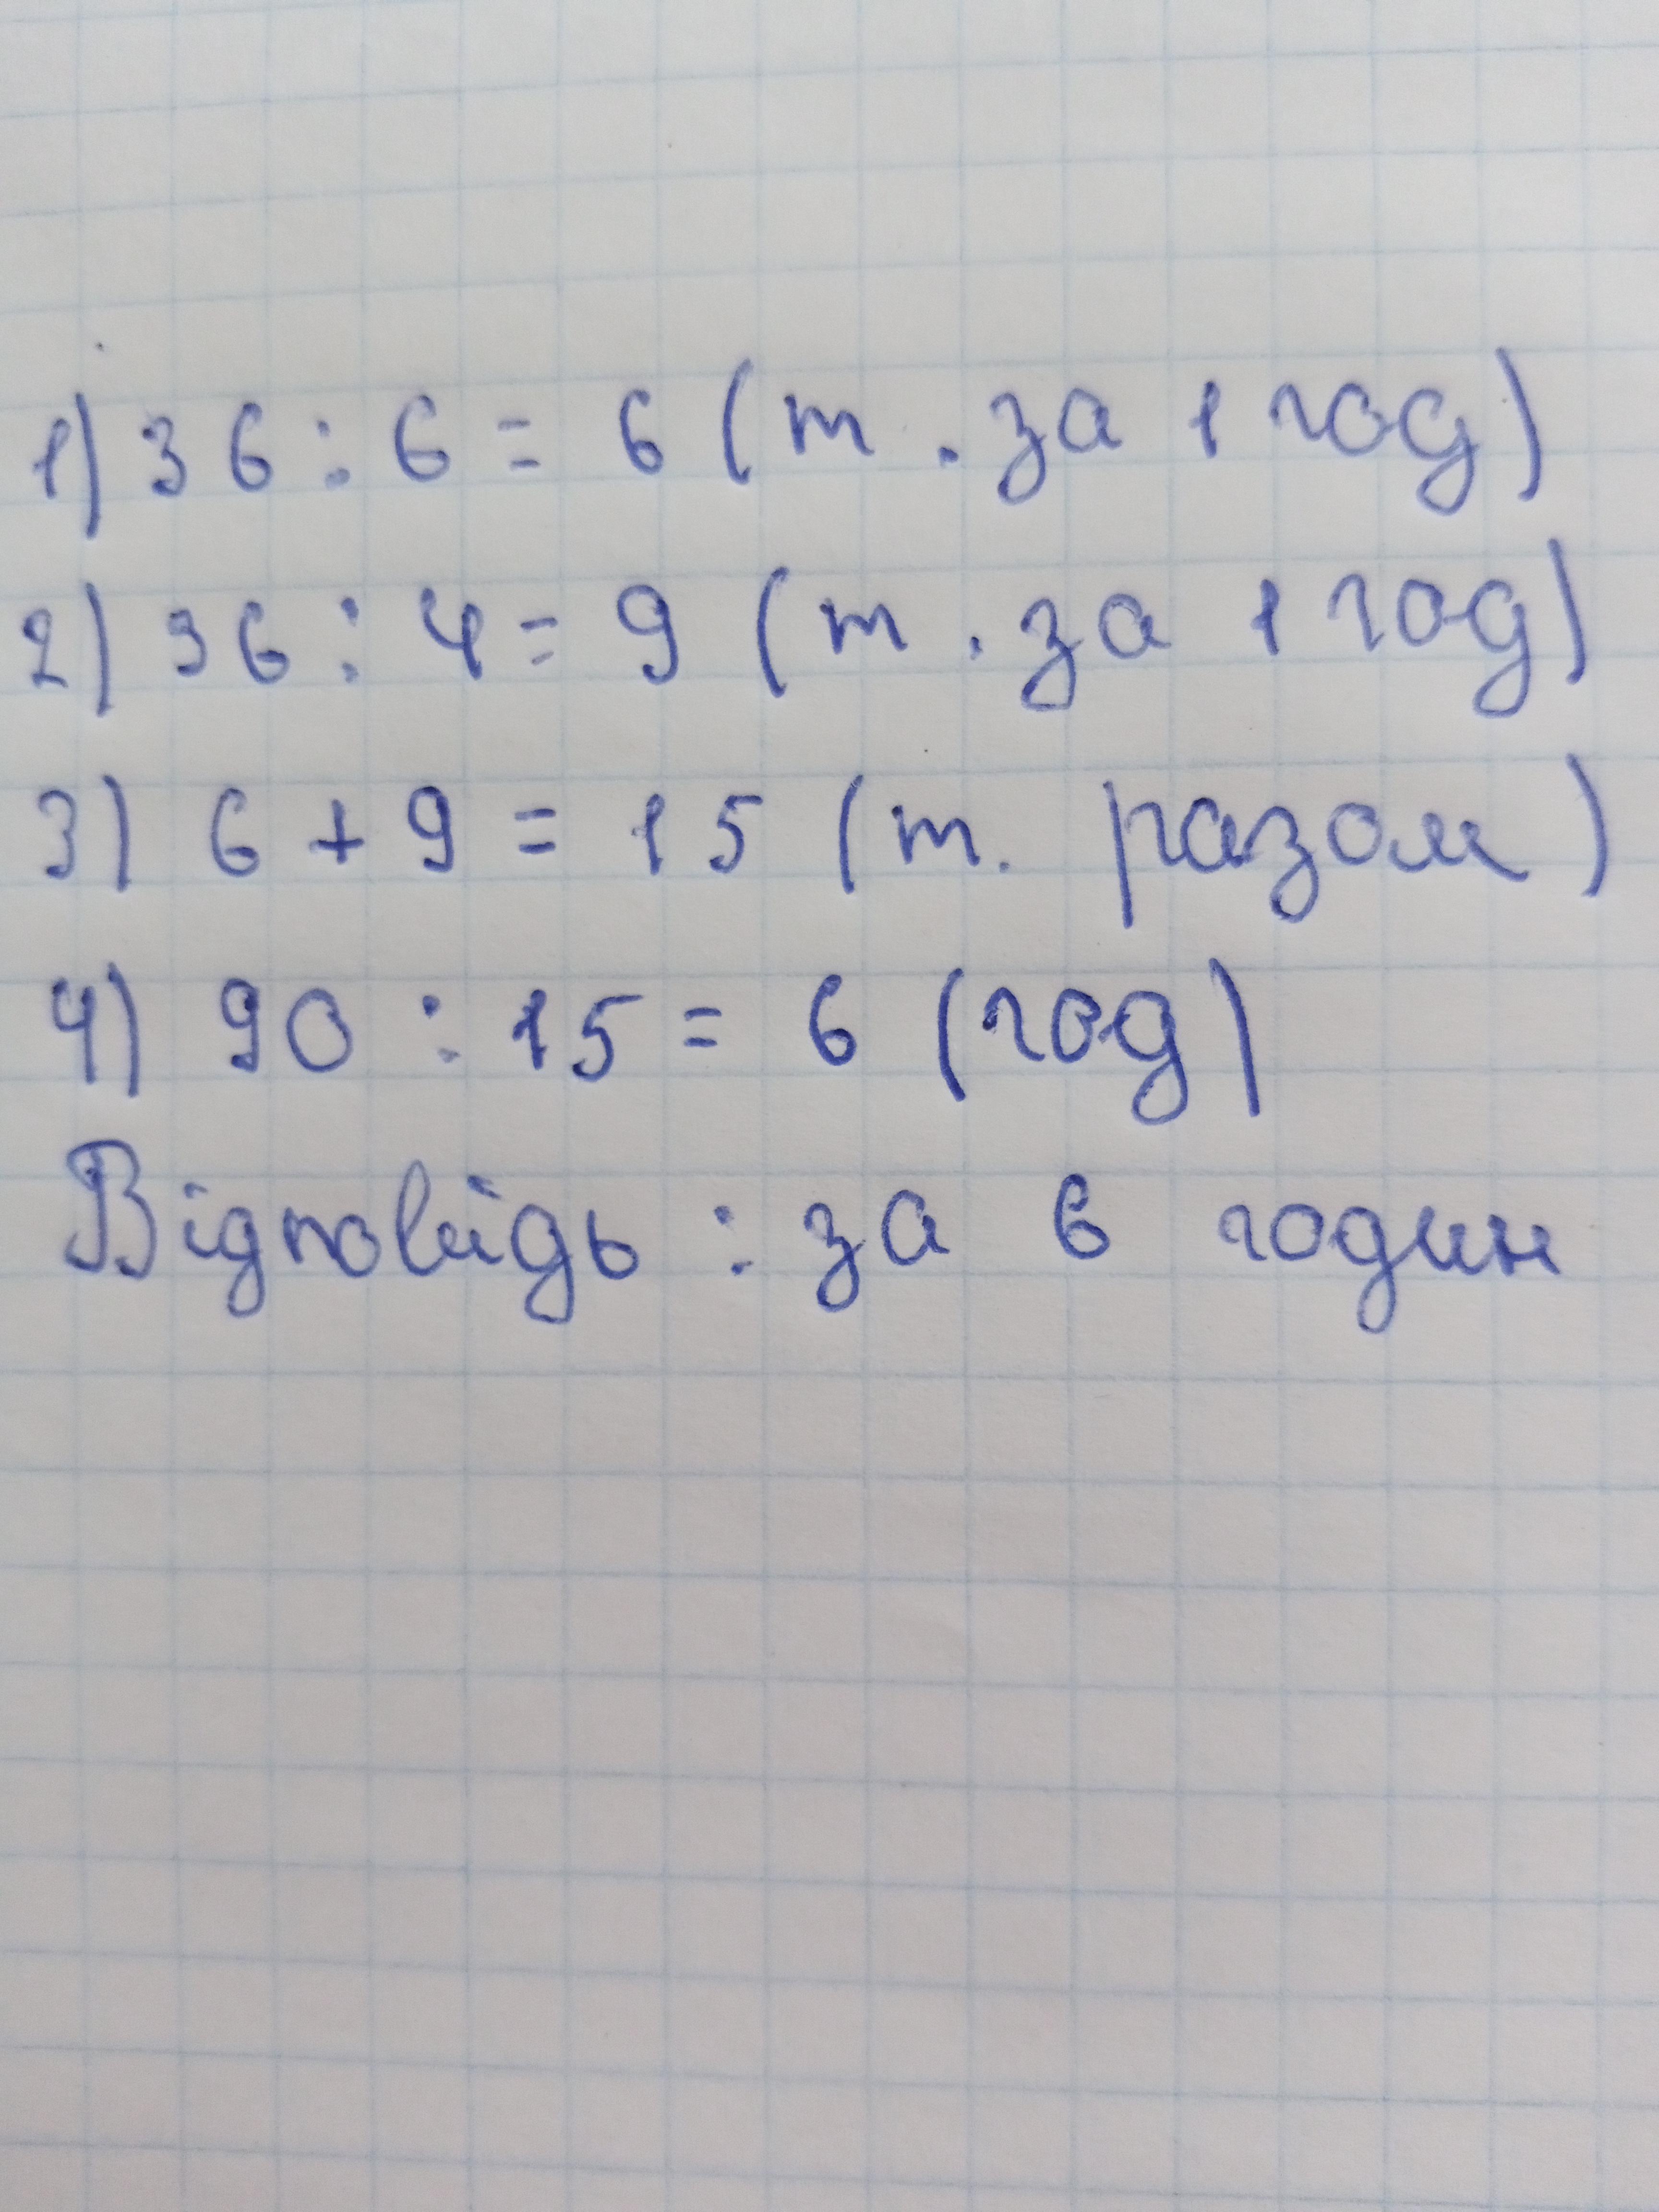 1) 36 : 6 = 6 (т. за 1 год)
2) 36 : 4 = 9 (т. за 1 год)
3) 6 + 9 = 15 (т. разом)
4) 90 : 15 = 6 (год)
Відповідь : за 6 годин